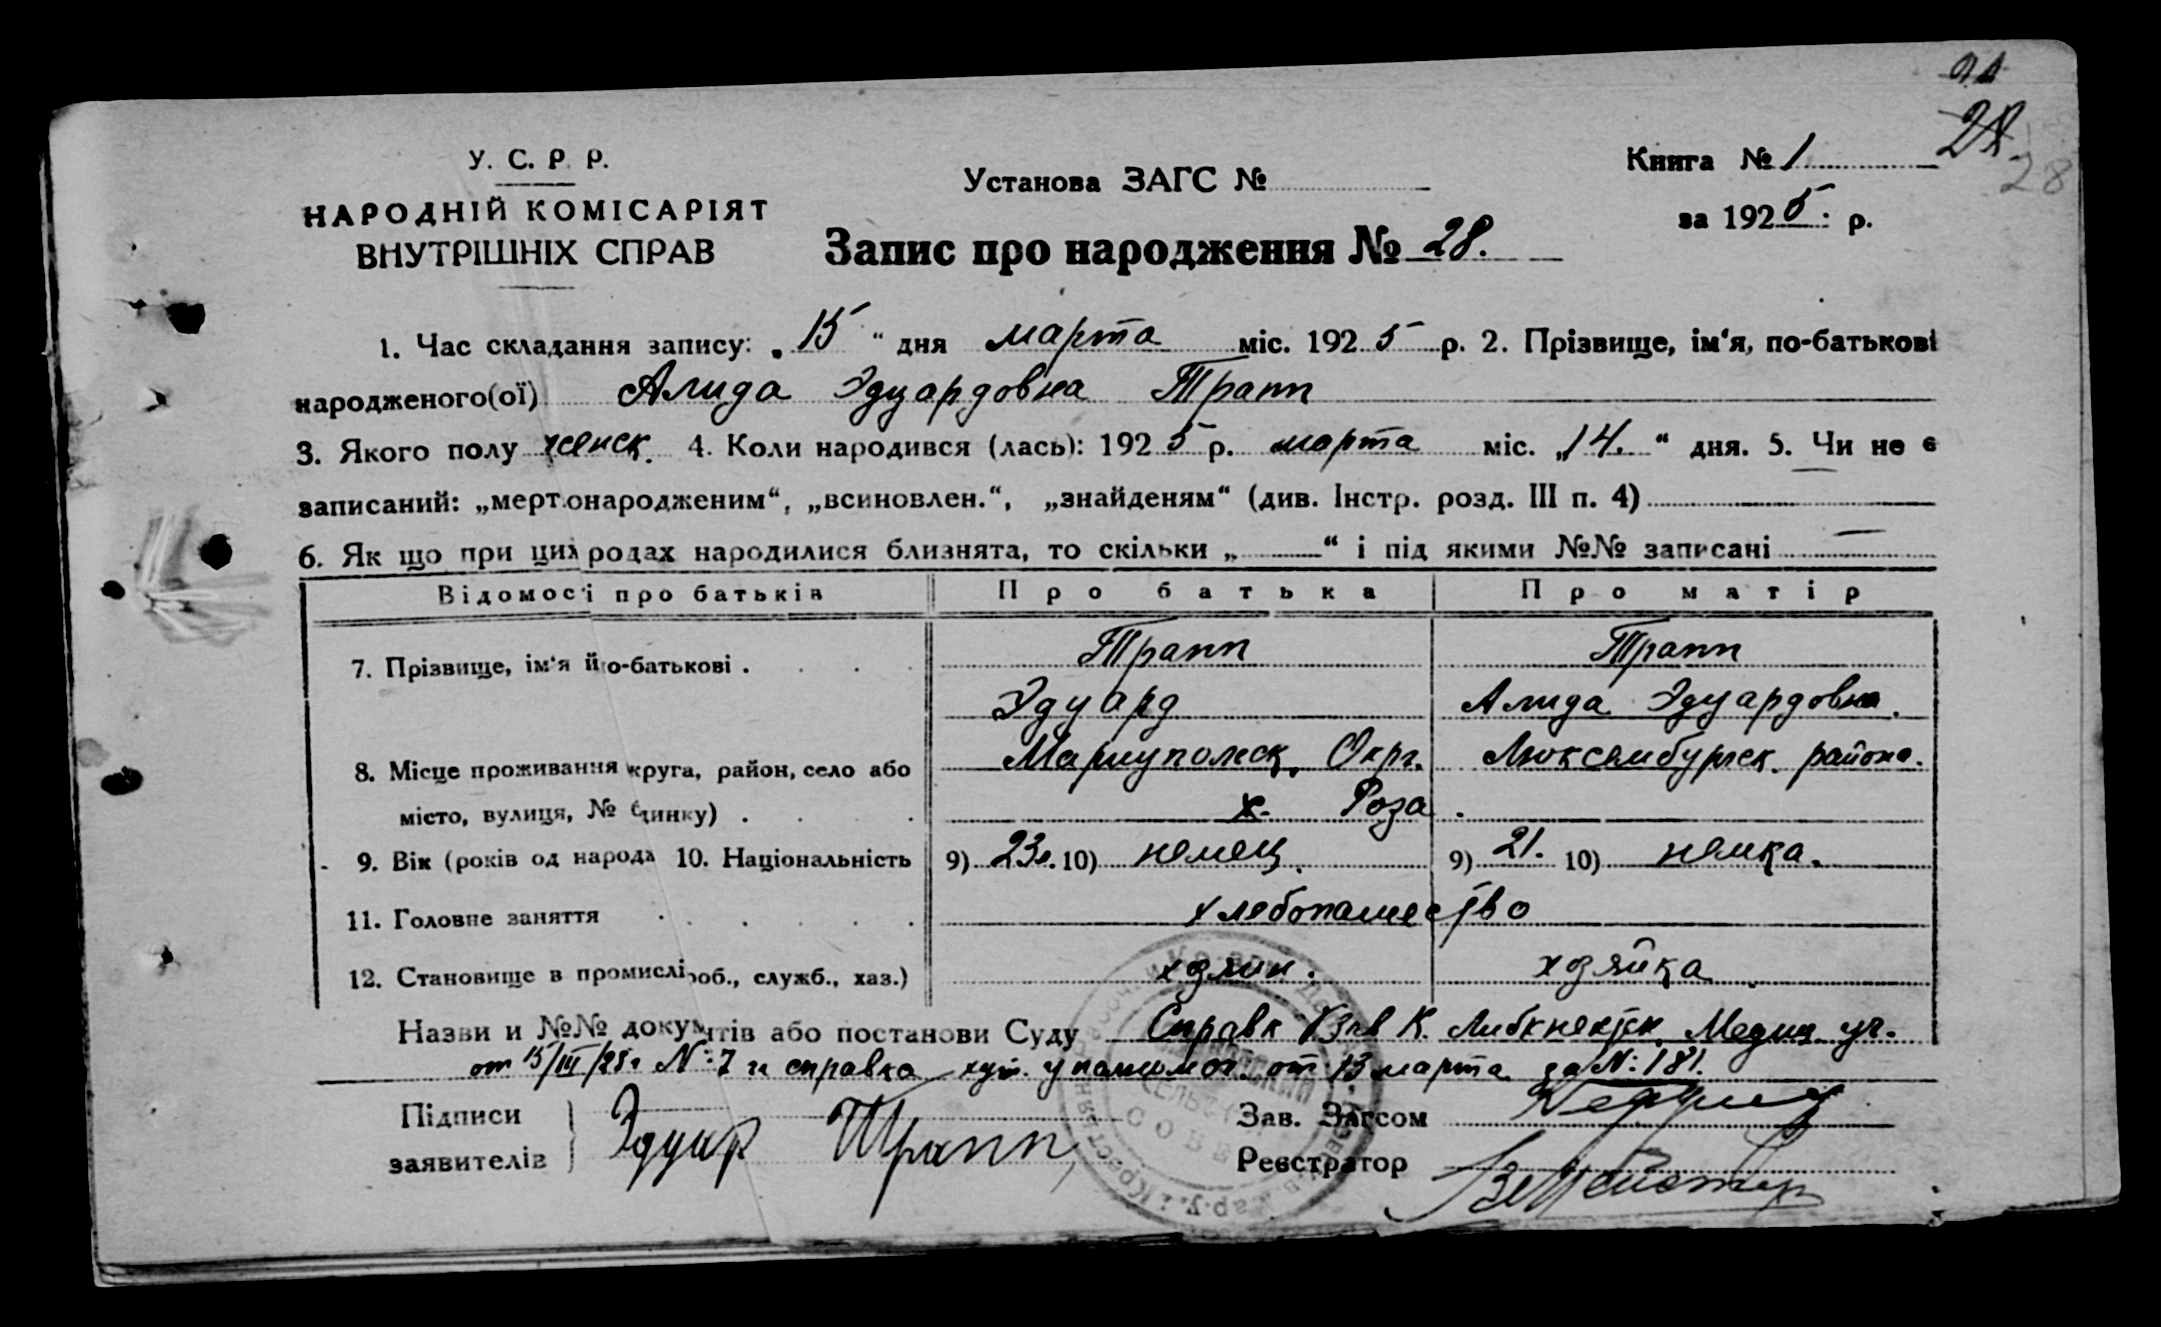 28
У. С. Р. Р.
НАРОДНІЙ КОМІСАРІЯТ
ВНУТРІШНІХ СПРАВ
Установа ЗАГС №
Книга № 1
за 1925 р.
Запис про народження № 28.
1. Час складання запису: „15“ дня марта міс. 1925 р. 2. Прізвище, ім‘я, по-батькові
народженого(ої) Алида Эдуардовна Трапп
3. Якого полу женск. 4. Коли народився (лась): 1925 р. марта міс. „14.“ дня. 5. Чи не є
записаний: „мертвонародженим“, „всиновлен.“, „знайденям“ (див. Інстр. розд. III п. 4)
6. Як що при цих родах народилися близнята, то скільки „ “ і під якими №№ записані
Відомості про батьків Про батька Про матір
7. Прізвище, ім‘я й по-батькові . Трапп Трапп
Эдуард Алида Эдуардовна.
8. Місце проживання круга, район, село або Мариупольск. Окр. Люксембургск. района.
місто, вулиця, № динку) . х. Роза.
9. Вік (років од народ 10. Національність 9) 23 л. 10) немец. 9) 21. 10) немка.
11. Головне заняття хлебопашество
12. Становище в промислі роб., служб., хаз.) хозяин. хозяйка
Назви и №№ документів або постанови Суду Справк К. Либкнехтск. Медиц. уч.
от 15/III/25 г № 7 и справка хут. уполномоч. от 13 марта за №: 181.
Підписи
заявителів
Эдуар Трапп
Зав. Загсом
Реєстратор